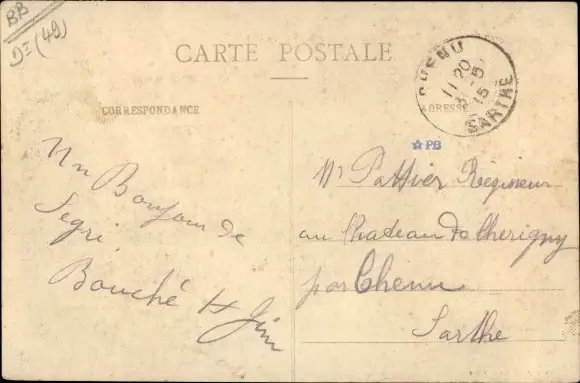 BB
Dt (49)
CARTE POSTALE
CORRESPONDANCE
ADRESSE
CHENU
11 20
5
15
SARTHE
PB
Un Bonjour de
Segré
Bouché H
Mr Pattier Régisseur
au Chateau de Cherigny
par Chenu
Sarthe